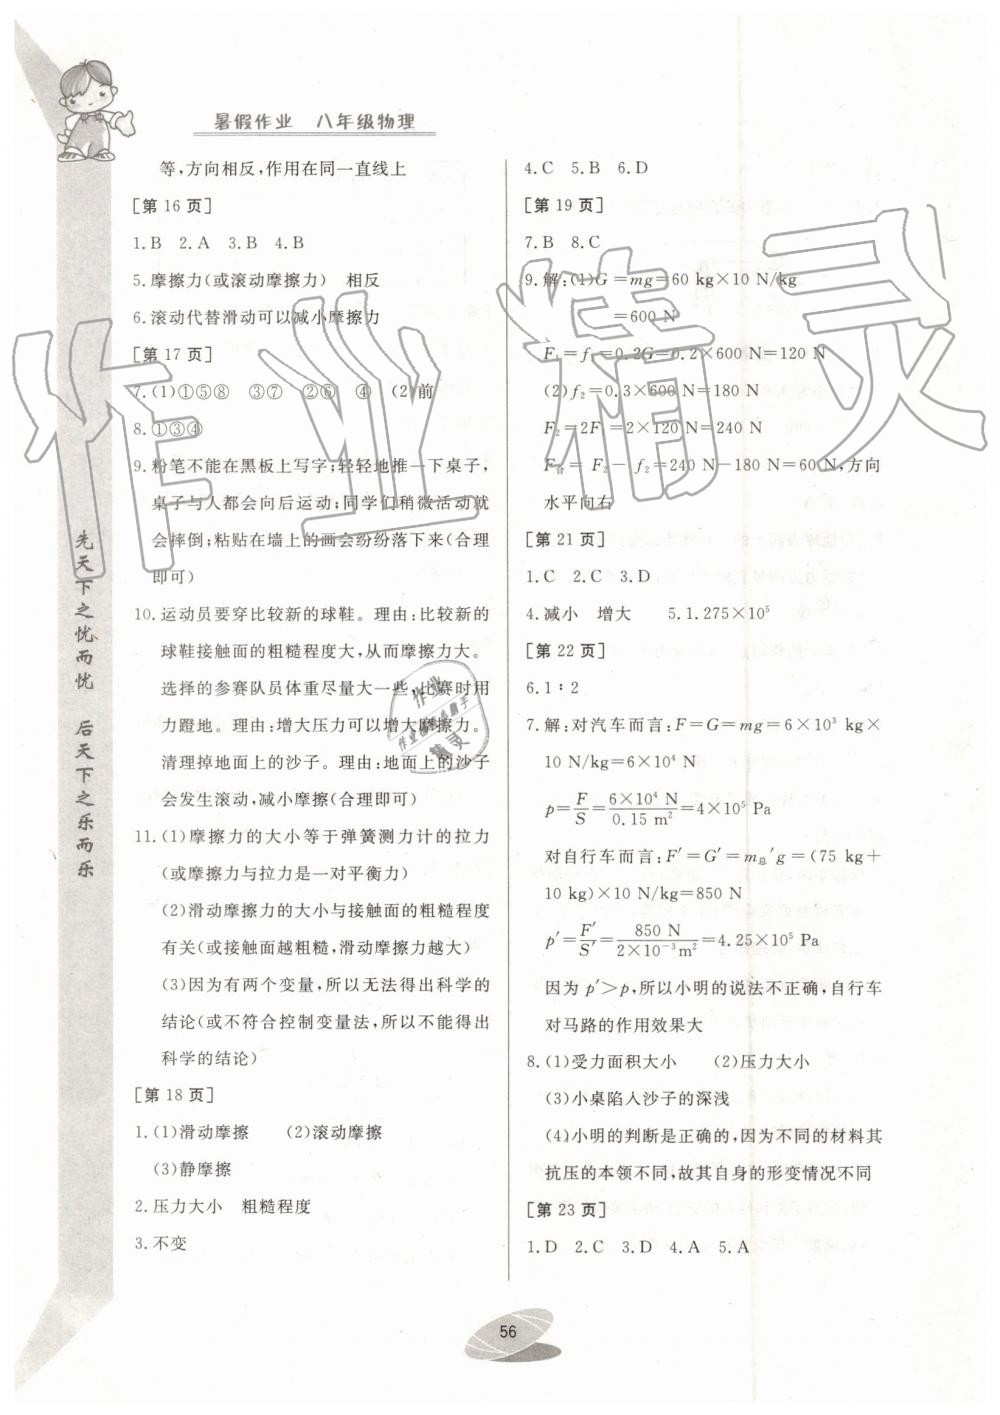 暑假作业 八年级物理
等,方向相反,作用在同一直线上
[第 16 页]
1.B 2.A 3.B 4.B
5.摩擦力(或滚动摩擦力) 相反
6.滚动代替滑动可以减小摩擦力
[第 17 页]
7.(1)①⑤⑧ ③⑦ ②⑥ ④ (2)前
8.①③④
9.粉笔不能在黑板上写字;轻轻地推一下桌子,
桌子与人都会向后运动;同学们稍微活动就
会摔倒;粘贴在墙上的画会纷纷落下来(合理
即可)
10.运动员要穿比较新的球鞋。理由:比较新的
球鞋接触面的粗糙程度大,从而摩擦力大。
选择的参赛队员体重尽量大一些,比赛时用
力蹬地。理由:增大压力可以增大摩擦力。
清理掉地面上的沙子。理由:地面上的沙子
会发生滚动,减小摩擦(合理即可)
11.(1)摩擦力的大小等于弹簧测力计的拉力
(或摩擦力与拉力是一对平衡力)
(2)滑动摩擦力的大小与接触面的粗糙程度
有关(或接触面越粗糙,滑动摩擦力越大)
(3)因为有两个变量,所以无法得出科学的
结论(或不符合控制变量法,所以不能得出
科学的结论)
[第 18 页]
1.(1)滑动摩擦 (2)滚动摩擦
(3)静摩擦
2.压力大小 粗糙程度
3.不变
4.C 5.B 6.D
[第 19 页]
7.B 8.C
9.解:(1)G=mg=60 kg×10 N/kg
=600 N
F₁=f₁=0.2G=0.2×600 N=120 N
(2)f₂=0.3×600 N=180 N
F₂=2F₁=2×120 N=240 N
F合=F₂-f₂=240 N-180 N=60 N,方向
水平向右
[第 21 页]
1.C 2.C 3.D
4.减小 增大 5.1.275×10⁵
[第 22 页]
6.1∶2
7.解:对汽车而言:F=G=mg=6×10³ kg×
10 N/kg=6×10⁴ N
p=F/S=6×10⁴ N/0.15 m²=4×10⁵ Pa
对自行车而言:F′=G′=m总′g=(75 kg+
10 kg)×10 N/kg=850 N
p′=F′/S′=850 N/2×10⁻³m²=4.25×10⁵ Pa
因为 p′>p,所以小明的说法不正确,自行车
对马路的作用效果大
8.(1)受力面积大小 (2)压力大小
(3)小桌陷入沙子的深浅
(4)小明的判断是正确的,因为不同的材料其
抗压的本领不同,故其自身的形变情况不同
[第 23 页]
1.D 2.C 3.D 4.A 5.A
先天下之忧而忧 后天下之乐而乐
56
作业精灵